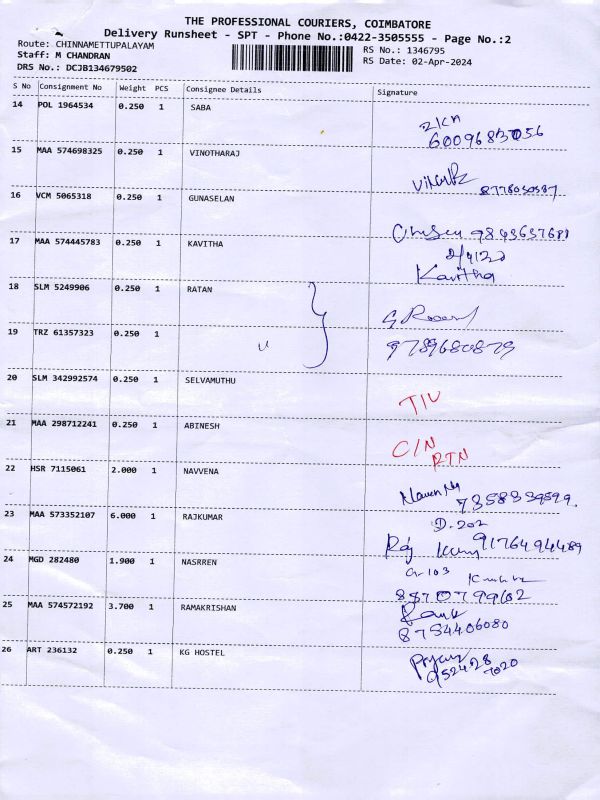 THE PROFESSIONAL COURIERS, COIMBATORE
Delivery Runsheet - SPT - Phone No.:0422-3505555 - Page No.:2
Route: CHINNAMETTUPALAYAM RS No.: 1346795
Staff: M CHANDRAN RS Date: 02-Apr-2024
DRS No.: DCJB134679502
S No Consignment No Weight PCS Consignee Details Signature
14 POL 1964534 0.250 1 SABA
15 MAA 574698325 0.250 1 VINOTHARAJ
16 VCM 5065318 0.250 1 GUNASELAN
17 MAA 574445783 0.250 1 KAVITHA
Kavitha
18 SLM 5249906 0.250 1 RATAN
19 TRZ 61357323 0.250 1
9789680879
20 SLM 342992574 0.250 1 SELVAMUTHU
21 MAA 298712241 0.250 1 ABINESH
C/N
RTN
22 HSR 7115061 2.000 1 NAVVENA
23 MAA 573352107 6.000 1 RAJKUMAR
D.202
Raj 9176494489
24 MGD 282480 1.900 1 NASRREN
G-103
25 MAA 574572192 3.700 1 RAMAKRISHAN
8754406080
26 ART 236132 0.250 1 KG HOSTEL
952428
7020